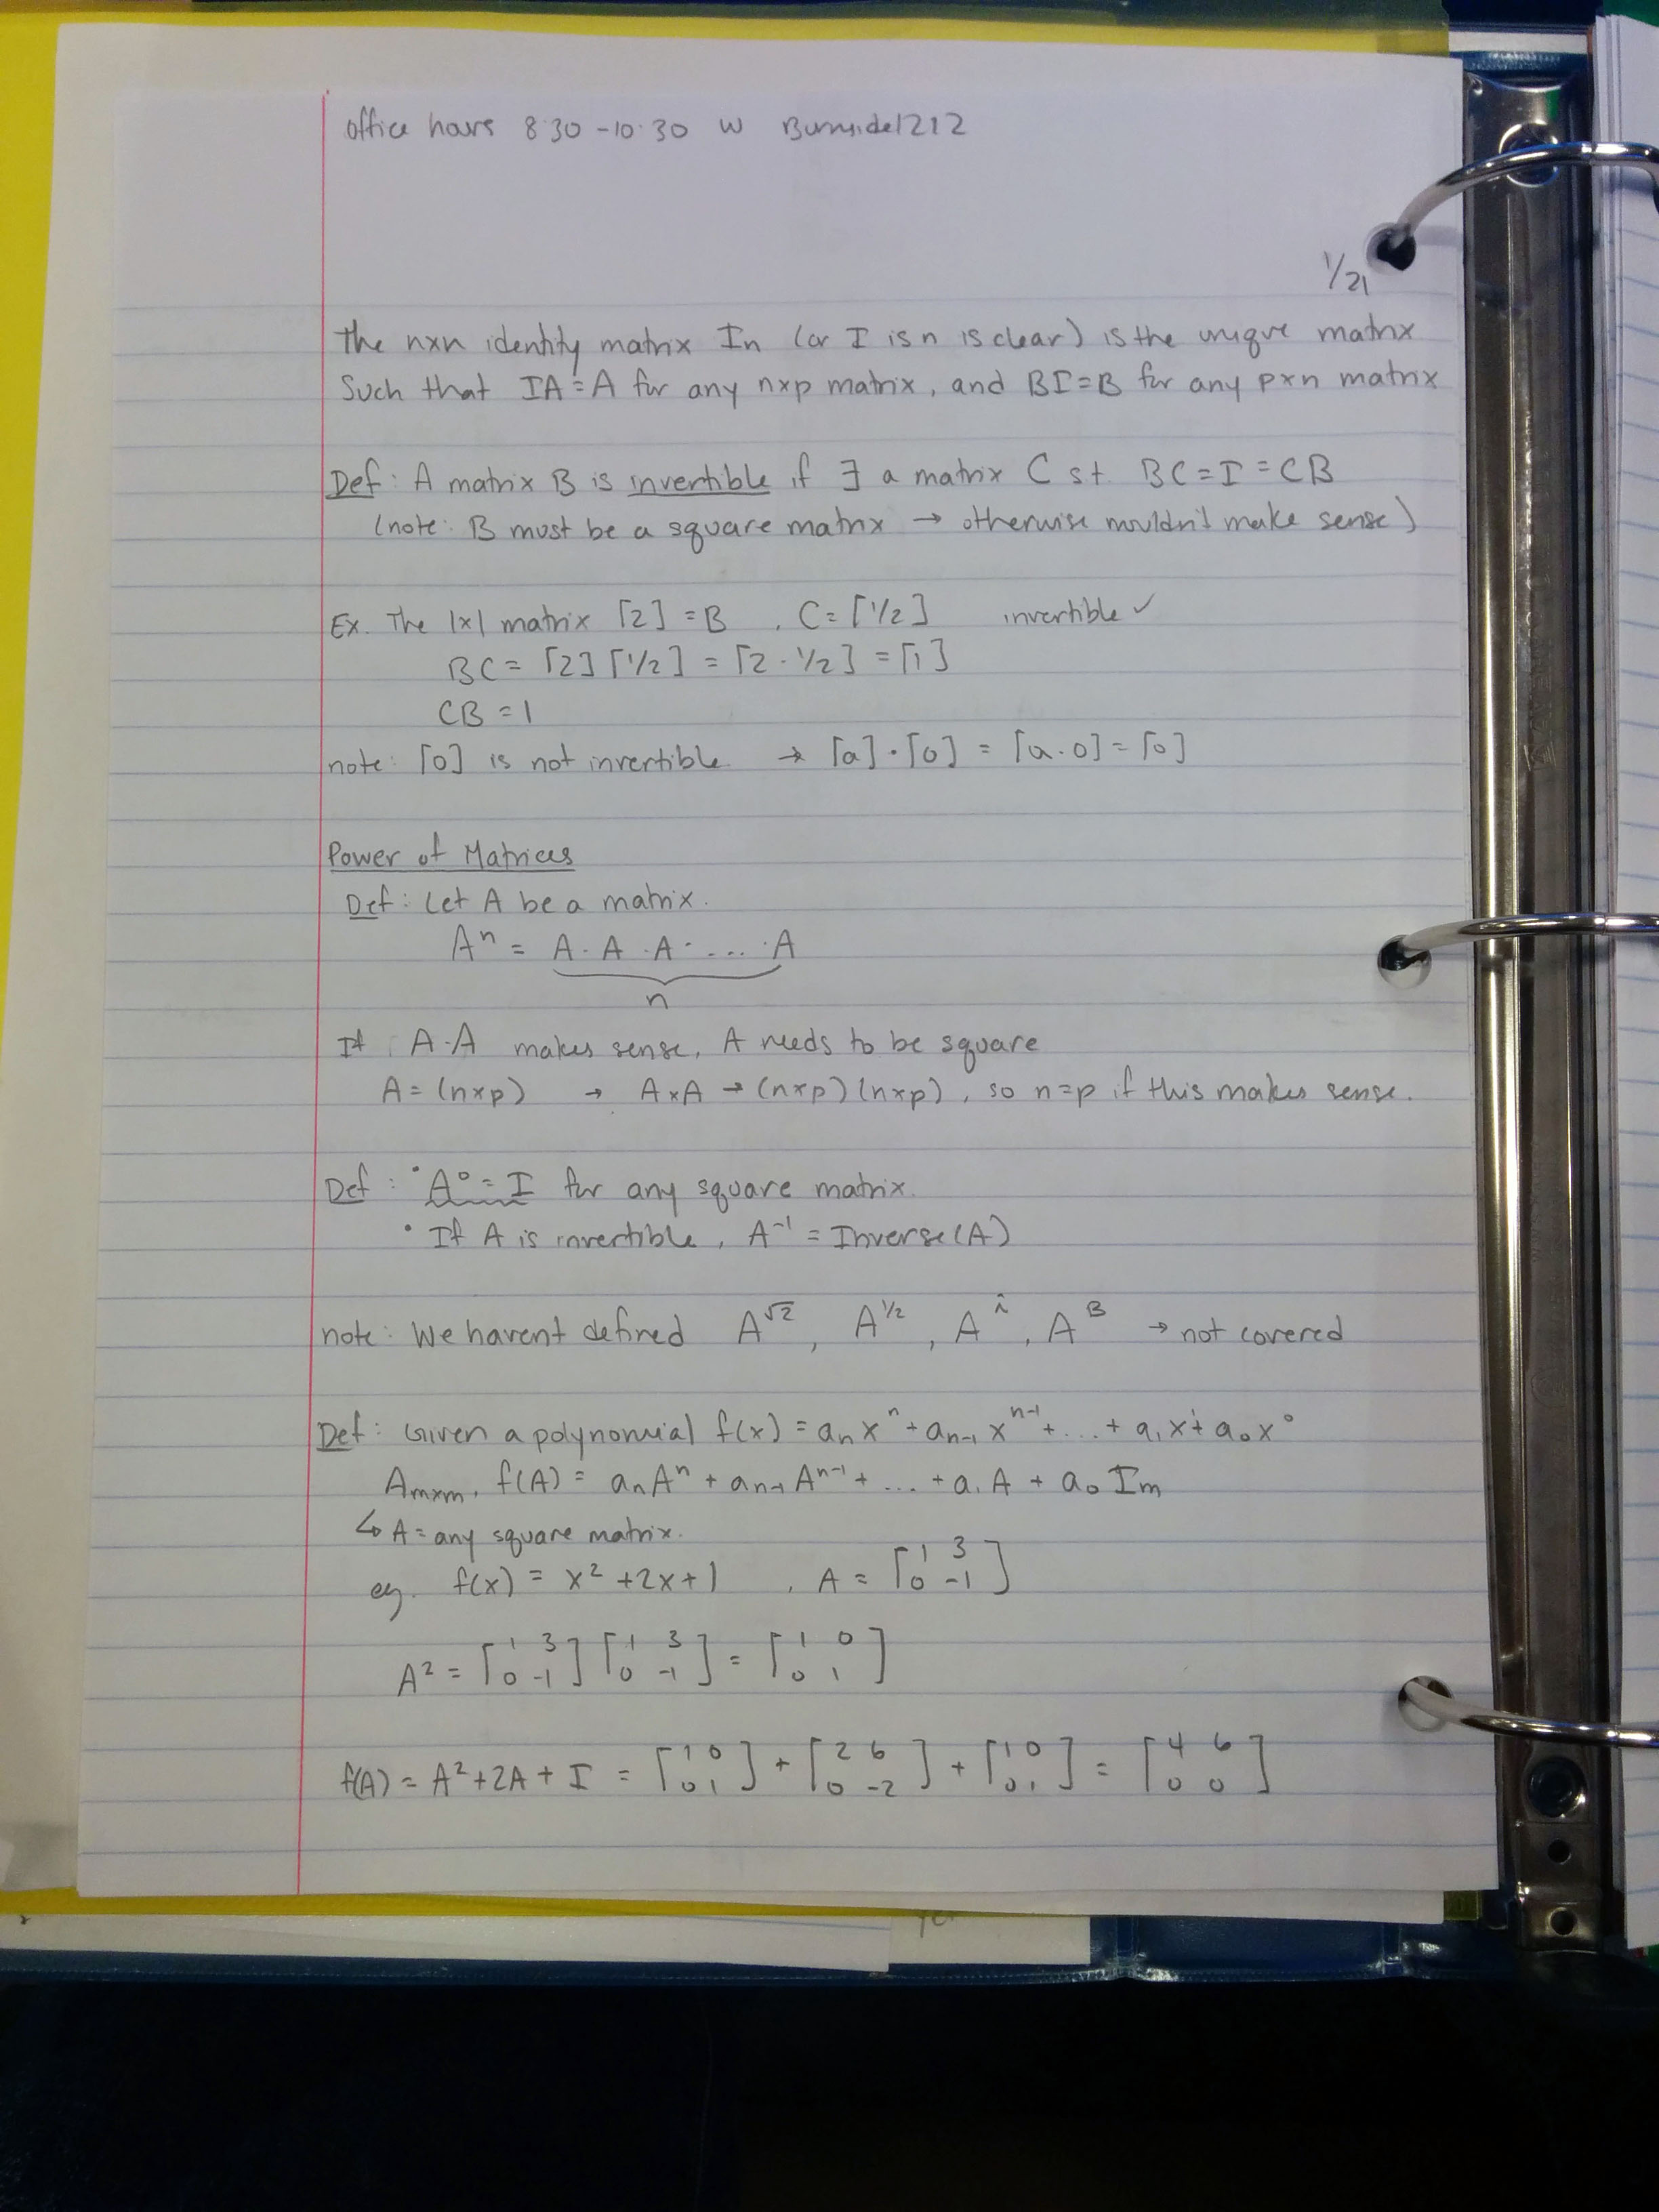 office hours 8:30-10:30 W Burnside 1212
1/21
The nxn identity matrix In (or I is n is clear) is the unique matrix
Such that IA=A for any nxp matrix, and BI=B for any pxn matrix
Def: A matrix B is invertible if ∃ a matrix C st. BC=I=CB
(note: B must be a square matrix → otherwise wouldn't make sense)
Ex. The 1x1 matrix [2]=B , C=[1/2] invertible ✓
BC = [2][1/2] = [2·1/2] = [1]
CB = 1
note: [0] is not invertible. → [a]·[0] = [a·0] = [0]
Power of Matrices
Def: Let A be a matrix.
Aⁿ = A·A·A·...·A
n
If A·A makes sense, A needs to be square
A = (nxp) → AxA → (nxp)(nxp), so n=p if this makes sense.
Def: • A⁰=I for any square matrix.
• If A is invertible, A⁻¹ = Inverse(A)
note: We havent defined A^√2, A^1/2, A^i, A^B → not covered
Def: Given a polynomial f(x) = anxⁿ + an-1xⁿ⁻¹ + ... + a1x¹ + a0x⁰
Amxm, f(A) = anAⁿ + an-1Aⁿ⁻¹ + ... + a1A + a0Im
↳ A = any square matrix.
eg. f(x) = x² + 2x + 1 , A = [1 3; 0 -1]
A² = [1 3; 0 -1][1 3; 0 -1] = [1 0; 0 1]
f(A) = A²+2A+I = [1 0; 0 1] + [2 6; 0 -2] + [1 0; 0 1] = [4 6; 0 0]